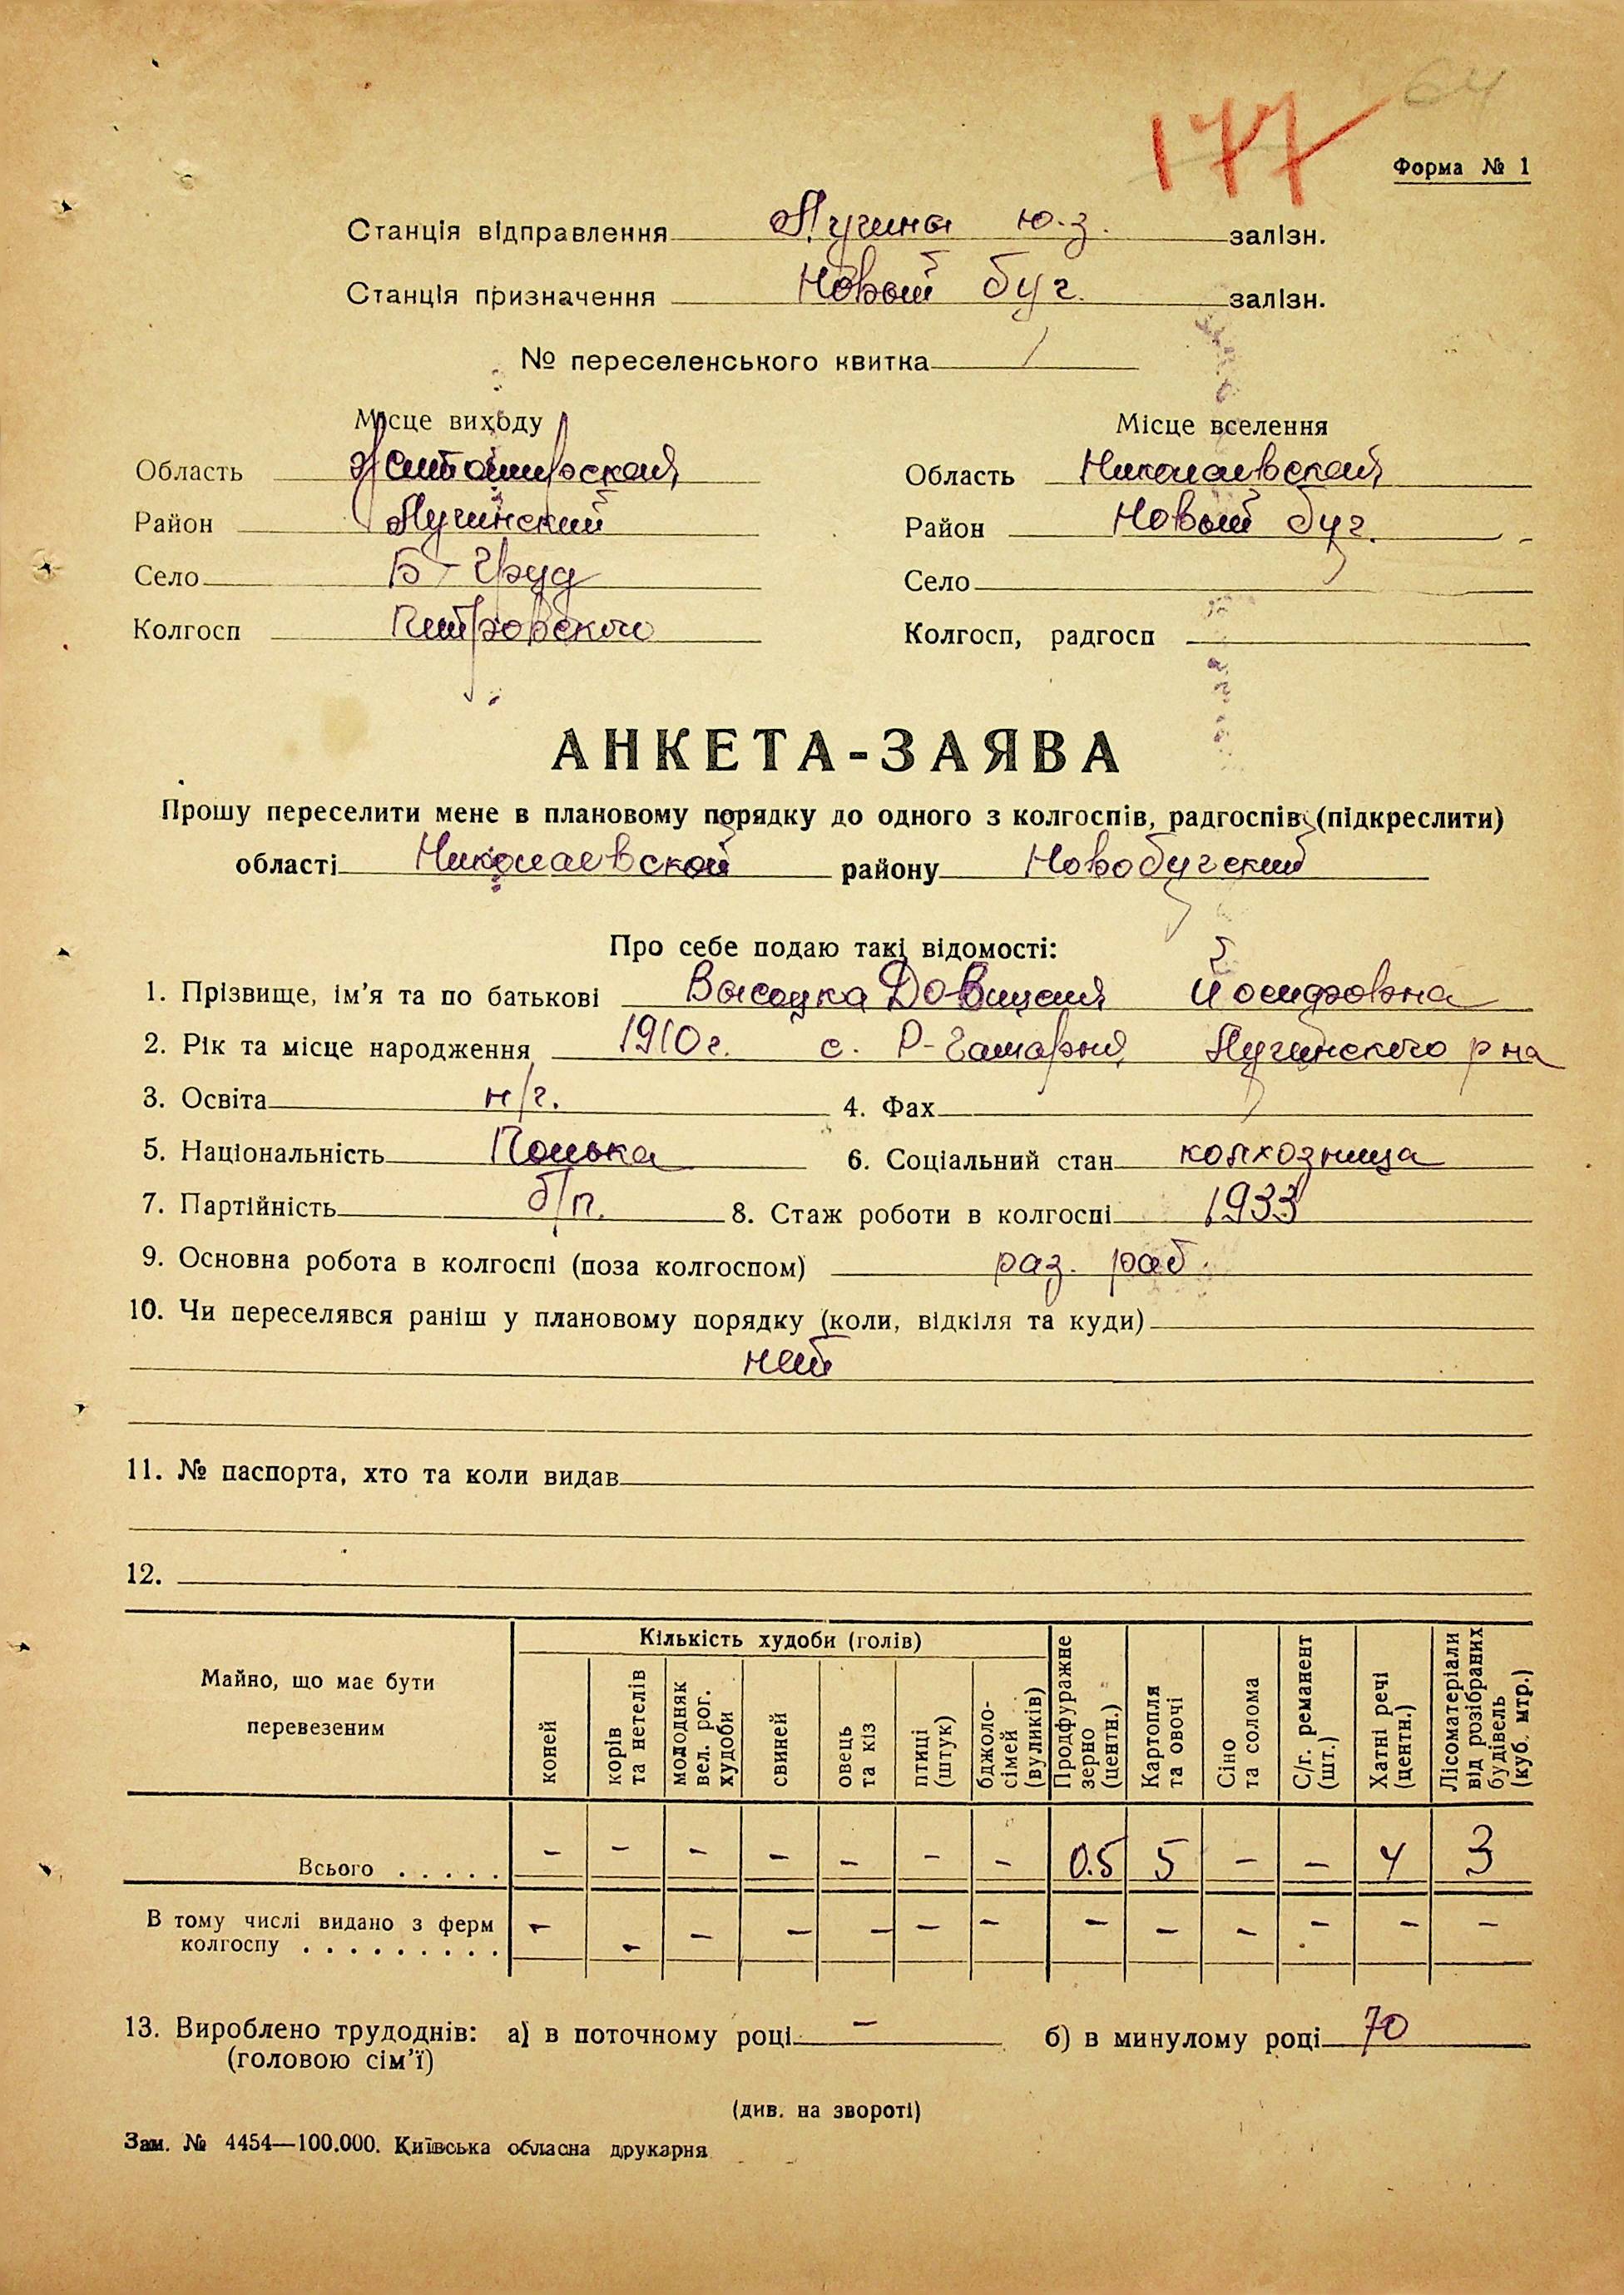 64
177
Форма № 1
Станція відправлення Лучины ю.з. залізн.
Станція призначення Новый буг. залізн.
№ переселенського квитка
Місце виходу
Місце вселення
Область Житомирская
Область Николаевская
Район Лугинский
Район Новый буг.
Село Б-Груд
Село
Колгосп Петровского
Колгосп, радгосп
АНКЕТА-ЗАЯВА
Прошу переселити мене в плановому порядку до одного з колгоспів, радгоспів (підкреслити)
області Николаевской району Новобугский
Про себе подаю такі відомості:
1. Прізвище, ім'я та по батькові Высоцка Йосифовна
2. Рік та місце народження 1910 г. с. Р-Гамарня Лугинского р на
3. Освіта н/г. 4. Фах
5. Національність Полька 6. Соціальний стан колхозница
7. Партійність б/п. 8. Стаж роботи в колгоспі 1933
9. Основна робота в колгоспі (поза колгоспом) раз. раб.
10. Чи переселявся раніш у плановому порядку (коли, відкіля та куди)
нет
11. № паспорта, хто та коли видав
12.
Майно, що має бути перевезеним
Кількість худоби (голів)
коней
корів та нетелів
молодняк вел. рог. худоби
свиней
овець та кіз
птиці (штук)
бджоло-сімей (вуликів)
Продфуражне зерно (центн.)
Картопля та овочі
Сіно та солома
С/г. реманент (шт.)
Хатні речі (центн.)
Лісоматеріали від розібраних будівель (куб. мтр.)
Всього . . . . . - - - - - - - 0.5 5 - - 4 3
В тому числі видано з ферм
колгоспу . . . . . . . . . - - - - - - - - - - - - -
13. Вироблено трудоднів: а) в поточному році - б) в минулому році 70
(головою сім'ї)
(див. на звороті)
Зам. № 4454—100.000. Київська обласна друкарня